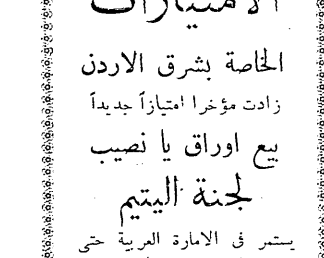 الامتيازات
الخاصة بشرق الاردن
زادت مؤخرا امتيازاً جديداً
بيع اوراق يا نصيب
لجنة اليتيم
يستمر في الامارة العربية حتى